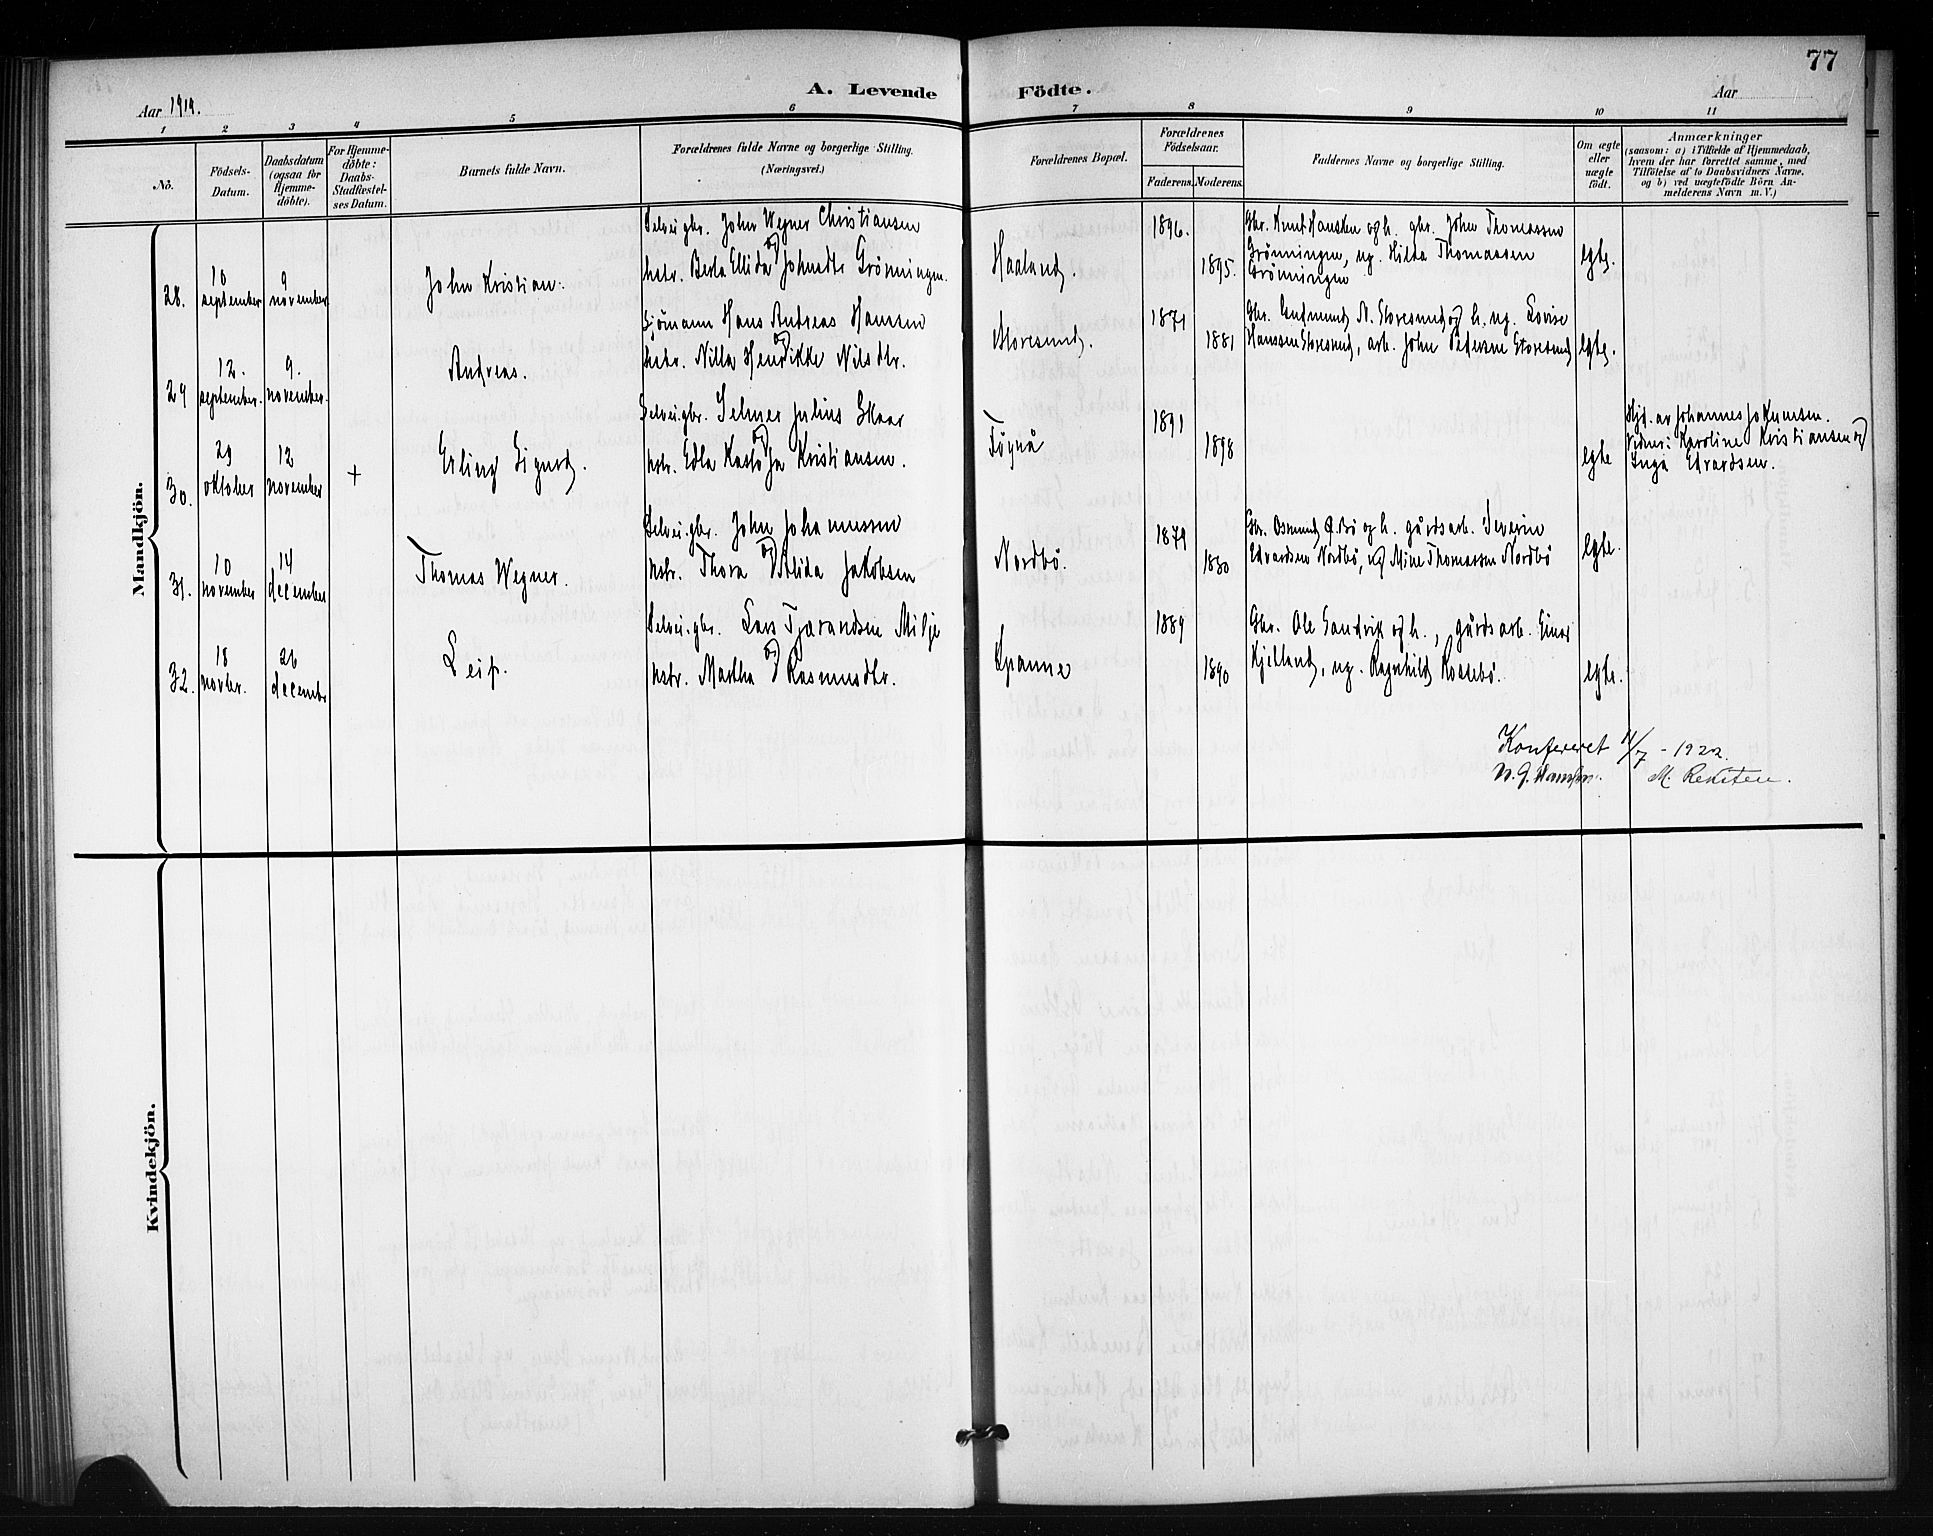 77
A. Levende Födte.
Aar 1919.
Aar
1 2 3 4 5 6 7 8 9 10 11
No.
Födsels-
Datum.
Daabsdatum
(ogsaa for
Hjemme-
döbte).
For Hjemme-
döbte:
Daabs-
Stadfæstel-
ses Datum.
Barnets fulde Navn.
Forældrenes fulde Navne og borgerlige Stilling.
(Næringsvei.)
Forældrenes Bopæl.
Forældrenes
Födselsaar.
Faderens.
Moderens.
Faddernes Navne og borgerlige Stilling.
Om ægte
eller
uægte
födt.
Anmærkninger
(saasom: a) i Tilfælde af Hjemmedaab,
hvem der har forrettet samme, med
Tilföielse af to Daabsvidners Navne,
og b) ved uægtefödte Börn An-
melderens Navn m. V.)
Mandkjön.
28.
10
september
9
november
John Kristian.
Selveigbr. John Wegner Christiansen
og
hstr. Berta Ellida Johnsdtr Grönningen.
Haaland.
1896.
1895.
Gbr. Knut Hansen og h. gbr. John Thomassen
Grönningen, ug. Hilda Thomassen
Grönningen
egte.
29
12.
september.
9.
november.
Andreas.
Sjömann Hans Andreas Hansen
og
hstr. Nilla Hendrikke Nilsdtr.
Storesund.
1871
1881
Gbr. Gudmund N. Storesund og h. ug. Lovise
Hanssen Storesund, arb. John Pedersen Storesund
egte.
30.
29
oktober
12
november
+
Erling Sigurd.
Selveigbr. Selmer Julius Skaar
og
hstr. Edla Kassoja Kristiansen.
Föynå
1891
1898
egte
Hjd. av Johannes Jokumsen.
Vidner: Karoline Kristiansen og
Inga Edvardsen.
31.
10
november
14
december
Thomas Wegner.
Selveigbr. John Johannessen
og
hstr. Thora Alida Jakobsen
Nordbö.
1879
1880
Gbr. Osmund J. Bö og h. gårdsarb. Severin
Edvardsen Nordbö, ug Mine Thomassen Nordbö
egte.
32.
18
novbr.
26
decembr
Leif.
Selveigbr. Lars Tjærandsen Milje
og
hstr. Martha Rasmusdtr.
Spanne
1889
1890
Gbr. Ole Sandvik og h., gårdsarb. Einar
Kjelland, ug. Ragnhild Rossebö.
egte.
Konfereret 11/7 - 1922.
M. Reksten.
Kvindekjön.